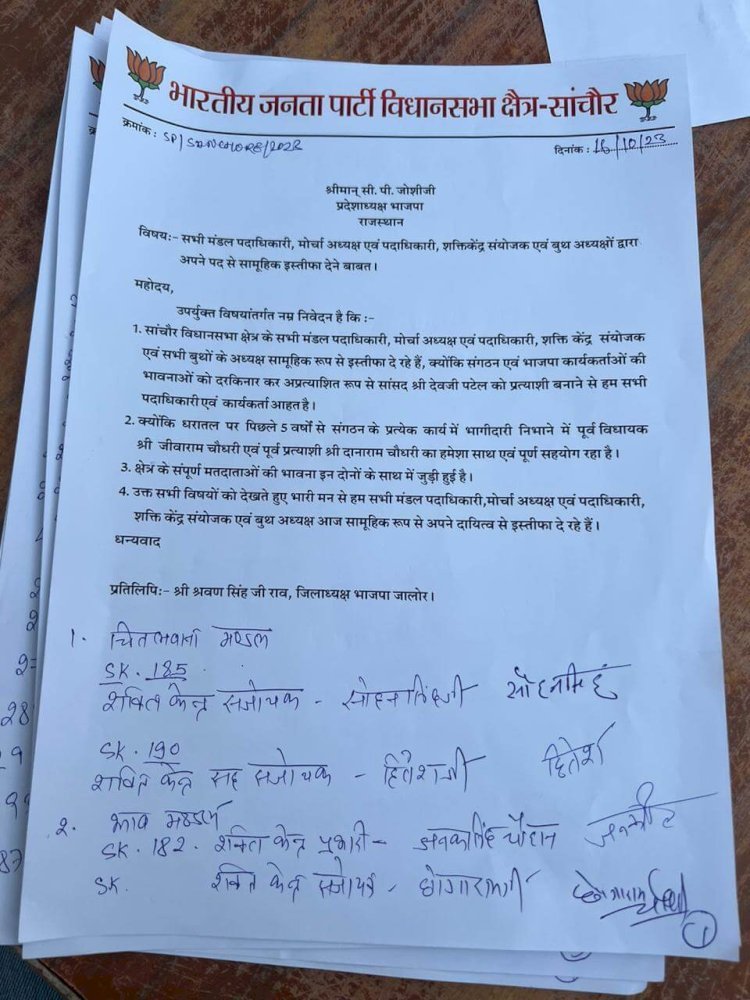 भारतीय जनता पार्टी विधानसभा क्षैत्र-सांचौर
क्रमांक : SP/SANCHORE/2023
दिनांक : 16/10/23
श्रीमान् सी. पी. जोशीजी
प्रदेशाध्यक्ष भाजपा
राजस्थान
विषय:- सभी मंडल पदाधिकारी, मोर्चा अध्यक्ष एवं पदाधिकारी, शक्तिकेंद्र संयोजक एवं बुथ अध्यक्षों द्वारा
अपने पद से सामूहिक इस्तीफा देने बाबत।
महोदय,
उपर्युक्त विषयांतर्गत नम्र निवेदन है कि :-
1. सांचौर विधानसभा क्षेत्र के सभी मंडल पदाधिकारी, मोर्चा अध्यक्ष एवं पदाधिकारी, शक्ति केंद्र संयोजक
एवं सभी बुथों के अध्यक्ष सामूहिक रूप से इस्तीफा दे रहे हैं, क्योंकि संगठन एवं भाजपा कार्यकर्ताओं की
भावनाओं को दरकिनार कर अप्रत्याशित रूप से सांसद श्री देवजी पटेल को प्रत्याशी बनाने से हम सभी
पदाधिकारी एवं कार्यकर्ता आहत है।
2. क्योंकि धरातल पर पिछले 5 वर्षो से संगठन के प्रत्येक कार्य में भागीदारी निभाने में पूर्व विधायक
श्री जीवाराम चौधरी एवं पूर्व प्रत्याशी श्री दानाराम चौधरी का हमेशा साथ एवं पूर्ण सहयोग रहा है।
3. क्षेत्र के संपूर्ण मतदाताओं की भावना इन दोनों के साथ में जुड़ी हुई है।
4. उक्त सभी विषयों को देखते हुए भारी मन से हम सभी मंडल पदाधिकारी,मोर्चा अध्यक्ष एवं पदाधिकारी,
शक्ति केंद्र संयोजक एवं बुथ अध्यक्ष आज सामूहिक रूप से अपने दायित्व से इस्तीफा दे रहे हैं।
धन्यवाद
प्रतिलिपि:- श्री श्रवण सिंह जी राव, जिलाध्यक्ष भाजपा जालोर।
1. चितलवाना मण्डल
SK. 185
शक्ति केन्द्र संजोयक - सोहनसिंहजी सोहनसिंह
SK. 190
शक्ति केन्द्र सह संजोयक - हितेशजी हितेश
2. झाब मण्डल
SK. 182. शक्ति केन्द्र प्रभारी - चौहान
SK. शक्ति केन्द्र संजोयक - छोगारामजी
1